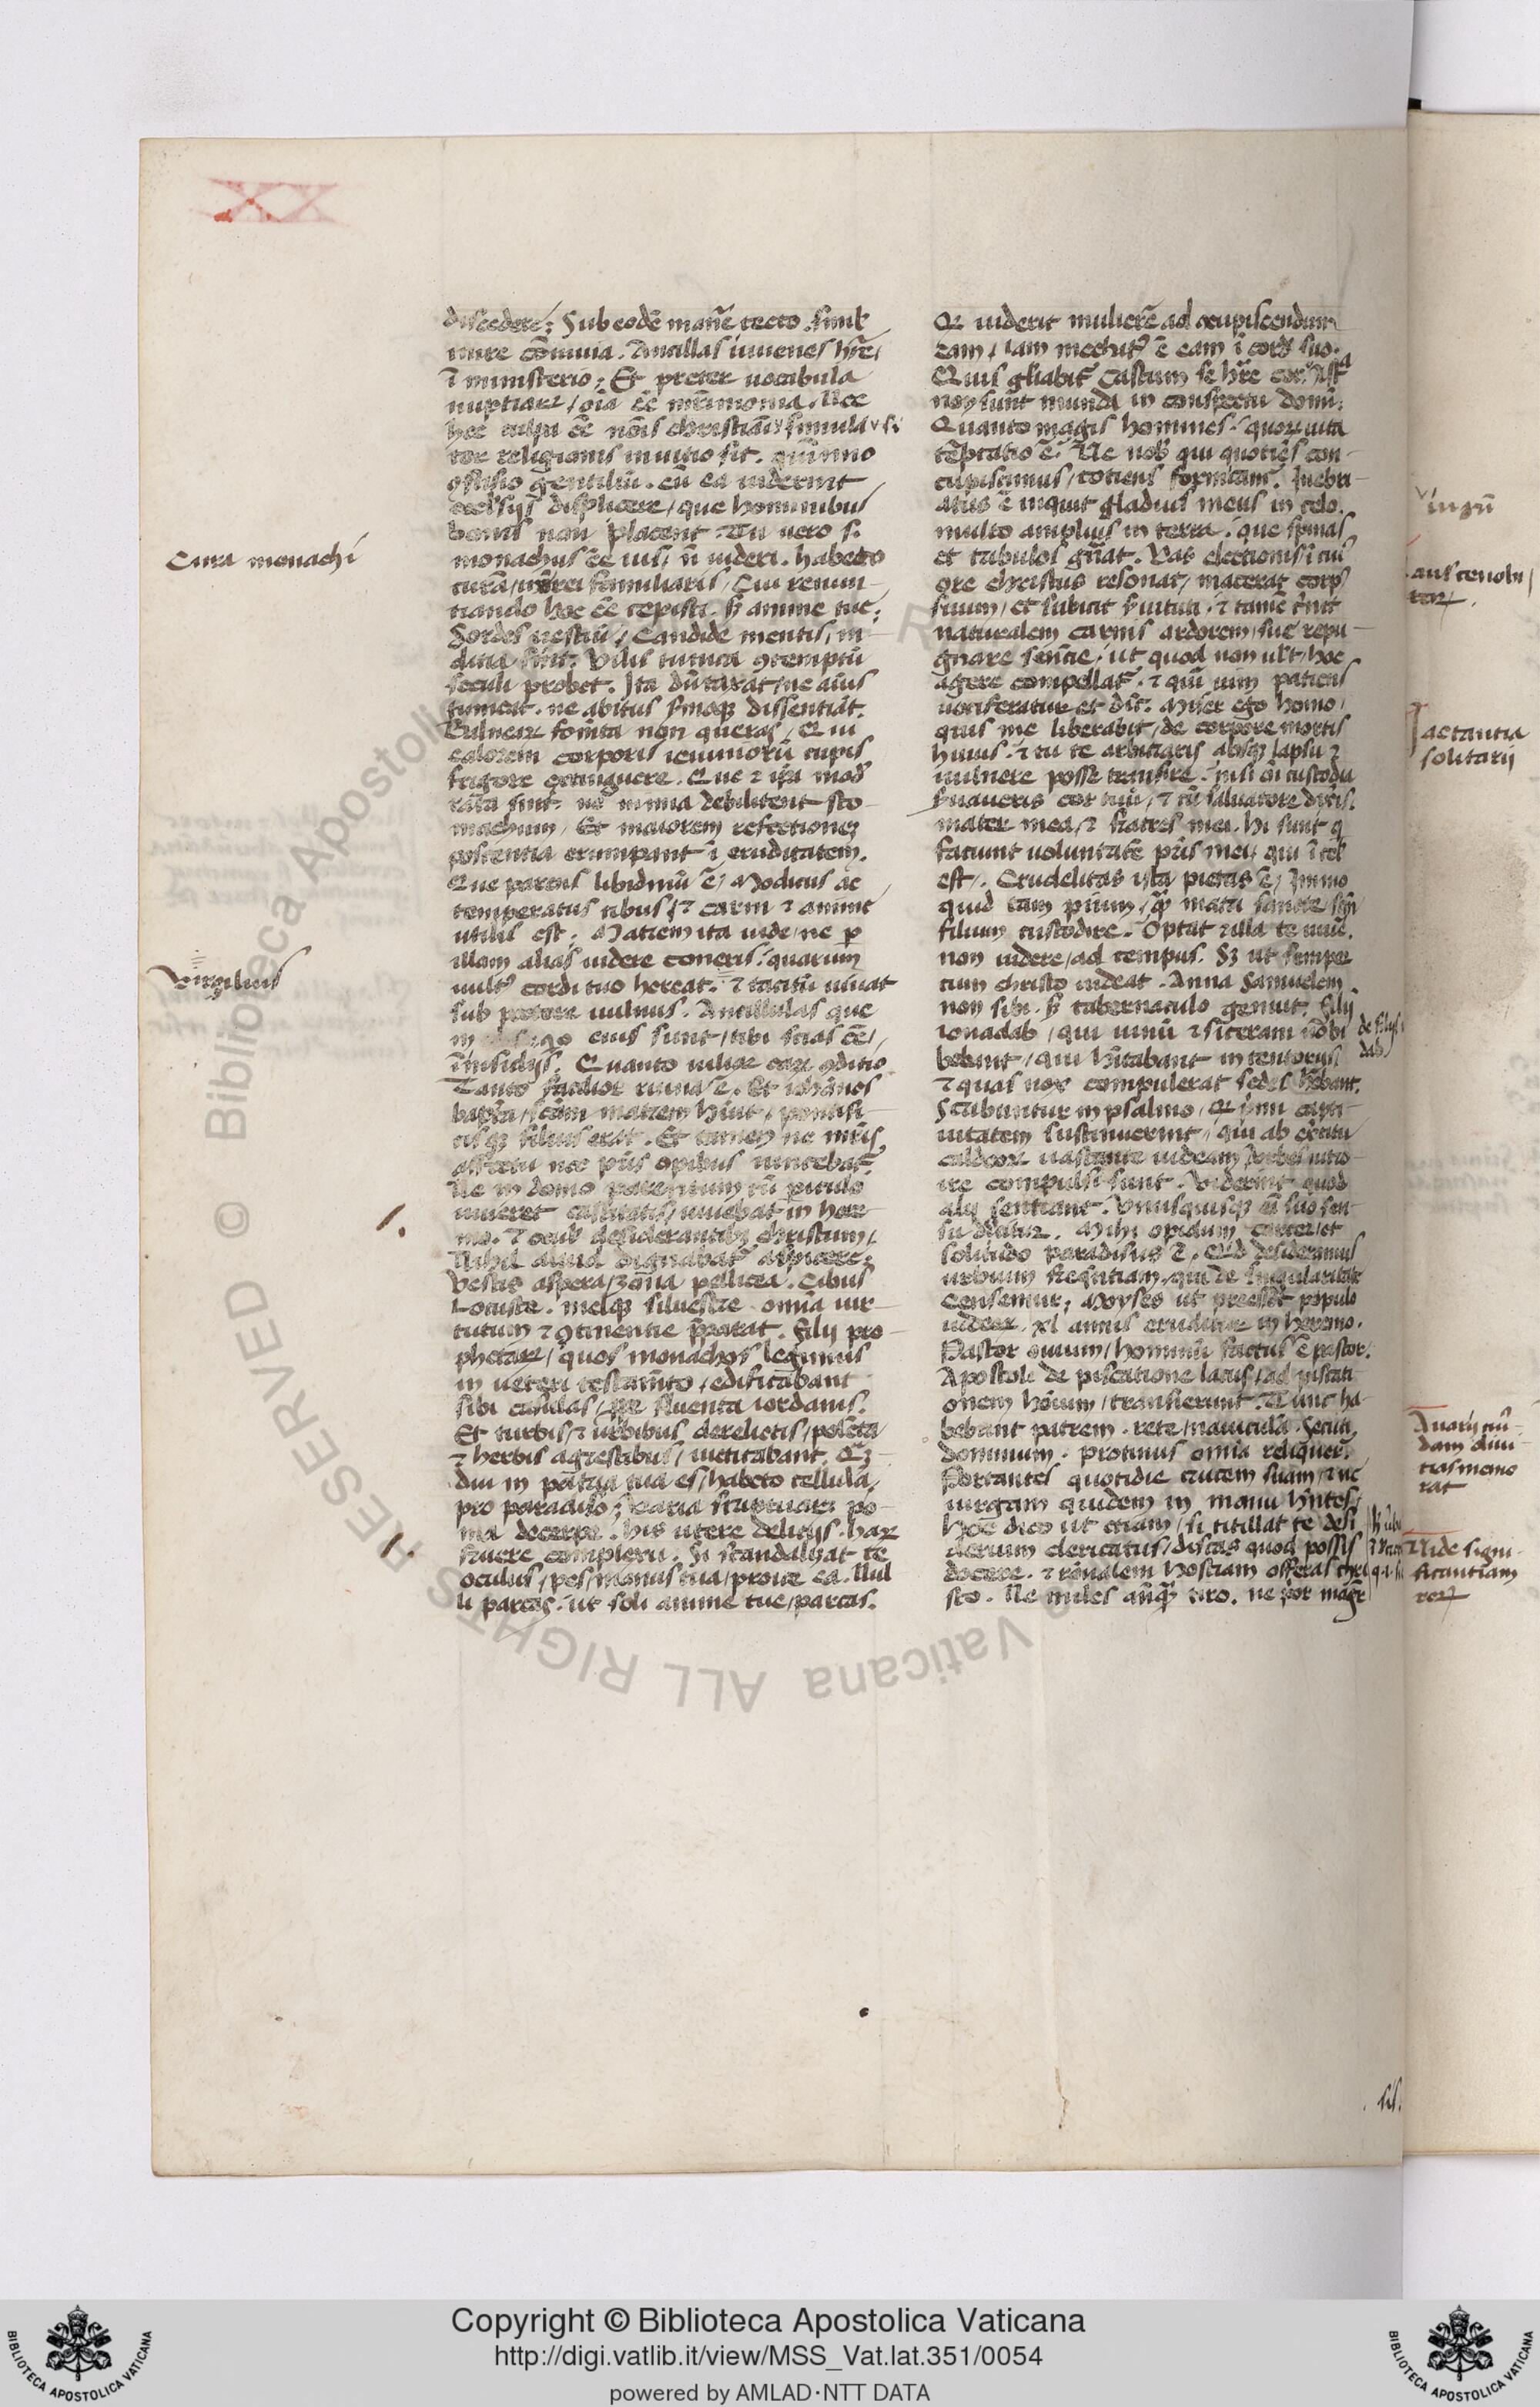 XX
discedere; Sub eodē manē tecto. simł
inire cōmiuia. Ancillas iuuenes hr̄e,
ī ministerio; Et preter uocabula
nuptiaꝝ, oīa ēē mr̄imonia. Nec
hec culpa ēē nōis christiāi, simula
tor religionis in uitio sit. quī imo
ɔfusio gentiliū. cū ea uiderint
eccl'sijs displicere, que hominibus
bonis non placent. Tu uero si
monachus ēē uis, nō uideri. habeto
curā, nō rei familiaris, Cui renun-
tiando hoc ēē cepisti. sꝫ anime tue;
Sordes uestiū, Candide mentis, in
ditia sint. Vilis tunica ɔtemptū
seculi probet. Ita dūtaxat, ne aīus
tumeat. ne abitus sermoqꝫ dissentiāt.
Balneaꝝ fomēta non queras, Qui
calorem corporis ieiuniorū cupis
frigore extinguere. Que ⁊ ip̄a mod
rata sint. ne nimia debilitent sto-
machum, Et maiorem refectioneꝫ
poscentia erumpant ī cruditatem.
Que parens libidinū ē, Modicus ac
temperatus cibus, ⁊ carni ⁊ anime
utilis est. Matrem ita uide, ne ꝑ
illam alias uidere coneris. quarum
uult' cordi tuo hereat. ⁊ tacitū uiuat
sub pectore uulnus. Ancillulas que
in eius sunt, tibi scias ēē,
ī insidijs. Quanto uilior eaꝝ ɔditio
Tanto facilior ruina ē. Et iohānes
bapt̄a, scām matrem h̄uit, pontifi-
cisqꝫ filius erat. Et tamen ne mr̄is
affectu nec pr̄is opibus uincebat'.
Ne in domo parentum cū periculo
uiueret castitatis, uiuebat in here
mo. ⁊ oculis desiderantibꝫ christum,
Nihil aliud dignabat' aspicere;
Vestis aspera, zona pellicea. Cibus
Locuste. melqꝫ siluestre. omnia uir-
tutum ⁊ ɔtinentie p̄parat. Filij pro-
phetaꝝ, quos monachos legimus
in ueteri testam̄to, edificabant
sibi casulas, ꝓpe fluenta iordanis.
Et turbis, ⁊ urbibus derelictis, polēta
⁊ herbis agrestibus, uictitabant. Qꝫ
diu in patria tua es, habeto cellulā
pro paradiso; Varia scripturaꝝ po-
ma decerpe. his utere delicijs. haꝝ
fruere complexu. Si scandalizat te
oculus, pes, manus tua, proice ea. Nul
li parcas. ut soli anime tue, parcas.
Cura monachi
Virgilius
Qui uiderit mulierē ad ɔcupiscendum
eam, iam mechat' ē eam ī corde suo.
Quis gl̄iabit' castum se hr̄e cor. Astra
non sunt munda in conspectu domi.
Quanto magis homines. quoꝝ uita
tēptatio ē. Ve nob' qui quotiēs con-
cupiscimus, totiens fornicam'. Inebri-
atus ē inquit gladius meus in celo.
multo amplius in terra. que spinas
et tribulos gn̄at. Vas electionis, ī cui'
ore christus resonat, macerat corp'
suum, et subicit seruituti. ⁊ tamē c'nit
naturalem carnis ardorem, sue repu-
gnare sentētie. ut quod non ult, hoc
agere compellat'. ⁊ quasi uim patiens
uociferatur et dīc. Miser ego homo,
quis me liberabit, de corpore mortis
huius. ⁊ tu te arbitraris absqꝫ lapsu ⁊
uulnere posse transire. nisi oī custodia
seruaueris cor tuū, ⁊ cū saluatore dixeris.
mater mea, ⁊ fratres mei. hi sunt q
faciunt uoluntatē pr̄is mei, qui ī cel
est. Crudelitas ista pietas ē, Immo
quid tam pium, q̄ matri sancte, scm
filium custodire. Optat ⁊ illa te uiuē.
non uidere, ad tempus. Sꝫ ut semper
cum christo uideat. Anna Samuelem
non sibi. sꝫ tabernaculo genuit. Filij
ionadab, qui uinū ⁊ siceram nō bi
bebant, qui h̄itabant in tentorijs
⁊ quas nox compulerat sedes h̄ebant.
Scribuntur in psalmo, qd primi capti-
uitatem sustinuerint, qui ab exercitu
caldeoꝝ uastante iudeam, urbes intro-
ire compulsi sunt. Viderint quod
alij sentiant. Vnusquisqꝫ eī suo sen-
su ducitur. Mihi opidum carcer, et
solitudo paradisus ē. Quid desideramus
urbium frequentiam, qui de singularitate
censemur; Moyses ut preesset populo
iudeoꝝ, xl annis eruditur in heremo.
Pastor ouium, hominū factus ē pastor.
Apostoli de piscatione lacus, ad piscati
onem hōium, transierunt. Tunc ha-
bebant patrem. rete, nauiculā. Secuti
dominum. protinus omnia reliquer̄.
Portantes quotidie crucem suam, ⁊ ne
uirgam quidem in manu h̄ntes.
Hoc dico ut etiam, si titillat te desi
derium clericatus, discas quod possis
docere. ⁊ rōnalem hostiam offeras chri
sto. Ne miles anteq̄ tiro. ne prior magr̄
de filijs
dab
sil.
aus cenobi
taꝝ.
Iactantia
solitarij
Auarij cui'-
dam diui-
tias memo
rat
Vide signi-
ficantiam
reꝝ
Copyright © Biblioteca Apostolica Vaticana
http://digi.vatlib.it/view/MSS_Vat.lat.351/0054
powered by AMLAD·NTT DATA
BIBLIOTECA APOSTOLICA VATICANA
BIBLIOTECA APOSTOLICA VATICANA
Biblioteca Apostolica Vaticana ALL RIGHTS RESERVED ©